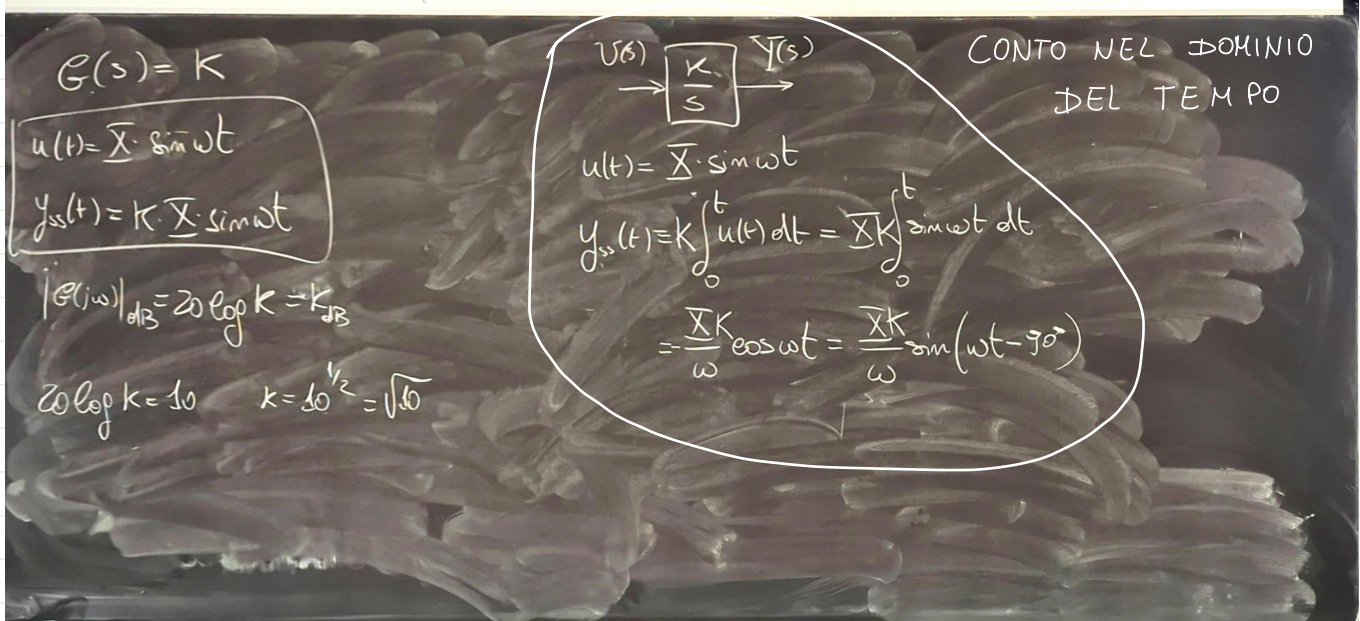 G(s) = K
u(t) = X · sin ωt
y_ss(t) = K · X · sin ωt
|G(jω)|_dB = 20 log K = K_dB
20 log K = 10 K = 10^1/2 = √10
U(s) K/s Y(s)
u(t) = X · sin ωt
y_ss(t) = K ∫_0^t u(t) dt = XK ∫_0^t sin ωt dt
= - XK/ω cos ωt = XK/ω sin(ωt - 90°)
CONTO NEL DOMINIO
DEL TEMPO